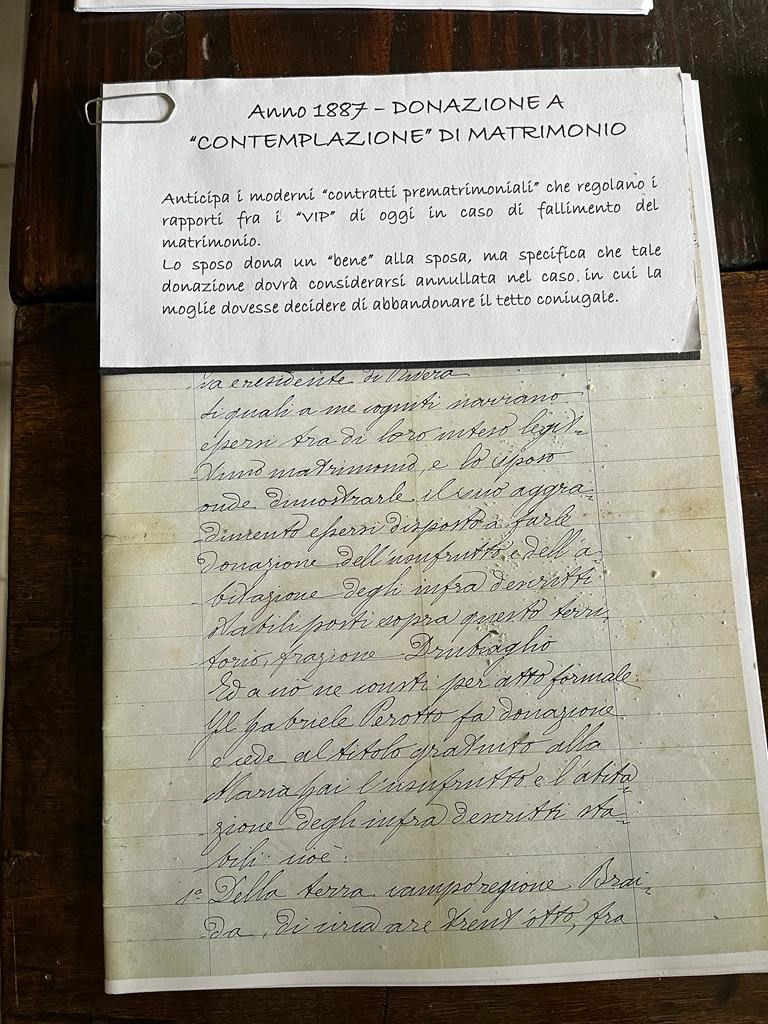 Anno 1887 – DONAZIONE A
“CONTEMPLAZIONE” DI MATRIMONIO
Anticipa i moderni “contratti prematrimoniali” che regolano i
rapporti fra i “VIP” di oggi in caso di fallimento del
matrimonio.
Lo sposo dona un “bene” alla sposa, ma specifica che tale
donazione dovrà considerarsi annullata nel caso in cui la
moglie dovesse decidere di abbandonare il tetto coniugale.
va e residente di
Li quali a me cogniti narrano
essersi tra di loro inteso legit-
timo matrimonio, e lo sposo
onde dimostrarle il suo aggra-
dimento essersi disposto a farle
donazione dell'usufrutto e dell'a-
bitazione degli infra descritti
stabili posti sopra questo terri-
torio, frazione Drubiaglio
Ed a ciò ne consti per atto formale.
Il Gabriele Perotto fa donazione
e cede al titolo gratuito alla
Maria l'usufrutto e l'abita-
zione degli infra descritti sta-
bili: cioè:
1º Della terra campo regione Brai-
da, di circa are trent'otto, fra